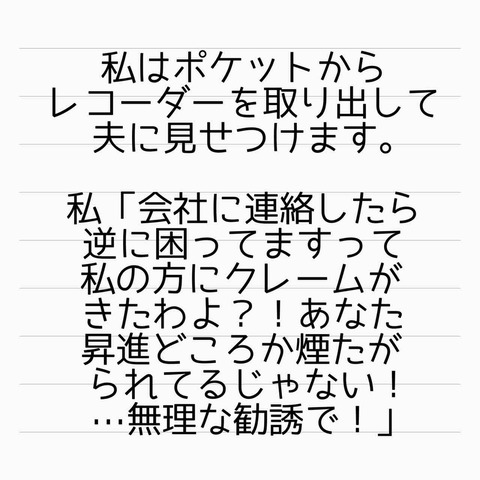 私はポケットから
レコーダーを取り出して
夫に見せつけます。
私「会社に連絡したら
逆に困ってますって
私の方にクレームが
きたわよ？！あなた
昇進どころか煙たが
られてるじゃない！
…無理な勧誘で！」